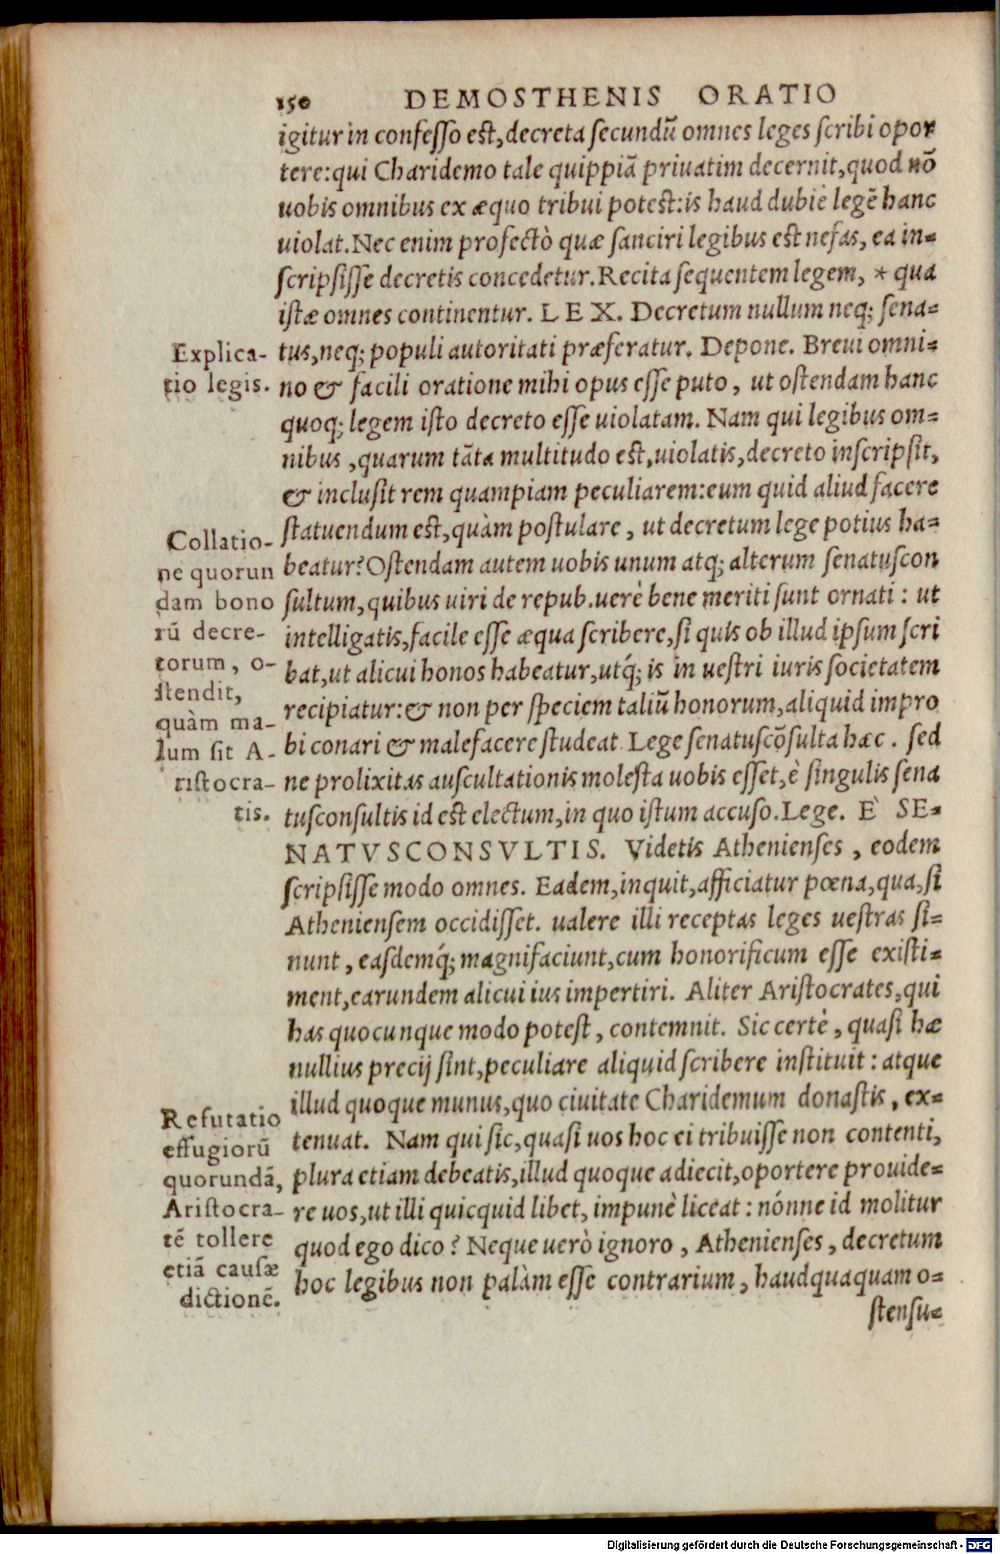 150 DEMOSTHENIS ORATIO
igitur in confesso est, decreta secundũ omnes leges scribi opor
tere: qui Charidemo tale quippiã priuatim decernit, quod nõ
uobis omnibus ex æquo tribui potest: is haud dubiè legẽ hanc
uiolat. Nec enim profectò quæ sanciri legibus est nefas, ea in-
scripsisse decretis concedetur. Recita sequentem legem, * qua
istæ omnes continentur. LEX. Decretum nullum neq; sena-
tus, neq; populi autoritati præferatur. Depone. Breui omni-
no & facili oratione mihi opus esse puto, ut ostendam hanc
quoq; legem isto decreto esse uiolatam. Nam qui legibus om-
nibus, quarum tãta multitudo est, uiolatis, decreto inscripsit,
& inclusit rem quampiam peculiarem: eum quid aliud facere
statuendum est, quàm postulare, ut decretum lege potius ha-
beatur? Ostendam autem uobis unum atq; alterum senatuscon
sultum, quibus uiri de repub. uerè bene meriti sunt ornati: ut
intelligatis, facile esse æqua scribere, si quis ob illud ipsum scri
bat, ut alicui honos habeatur, utq́; is in uestri iuris societatem
recipiatur: & non per speciem taliũ honorum, aliquid impro
bi conari & malefacere studeat. Lege senatuscõsulta hæc. sed
ne prolixitas auscultationis molesta uobis esset, è singulis sena
tusconsultis id est electum, in quo istum accuso. Lege. È SE-
NATVSCONSVLTIS. Videtis Athenienses, eodem
scripsisse modo omnes. Eadem, inquit, afficiatur pœna, qua, si
Atheniensem occidisset. ualere illi receptas leges uestras si-
nunt, easdemq́; magnifaciunt, cum honorificum esse existi-
ment, earundem alicui ius impertiri. Aliter Aristocrates, qui
has quocunque modo potest, contemnit. Sic certè, quasi hæ
nullius precij sint, peculiare aliquid scribere instituit: atque
illud quoque munus, quo ciuitate Charidemum donastis, ex-
tenuat. Nam qui sic, quasi uos hoc ei tribuisse non contenti,
plura etiam debeatis, illud quoque adiecit, oportere prouide-
re uos, ut illi quicquid libet, impunè liceat: nónne id molitur
quod ego dico? Neque uerò ignoro, Athenienses, decretum
hoc legibus non palàm esse contrarium, haudquaquam o-
stensu-
Explica-
tio legis.
Collatio-
ne quorun
dam bono
rũ decre-
torum, o-
stendit,
quàm ma-
lum sit A-
ristocra-
tis.
Refutatio
effugiorũ
quorundã,
Aristocra-
tẽ tollere
etiã causæ
dictionẽ.
Digitalisierung gefördert durch die Deutsche Forschungsgemeinschaft - DFG